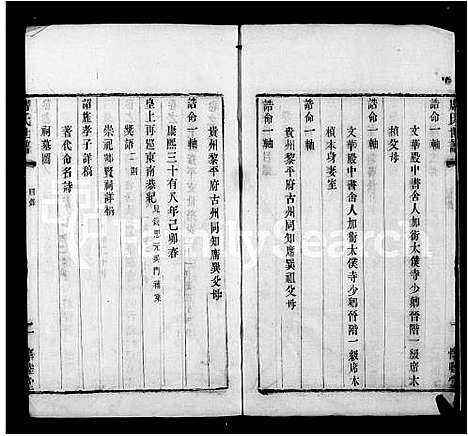 誥命一軸
文華殿中書舍人加銜太僕寺少卿晉階一級席本
楨父母
誥命一軸
文華殿中書舍人加銜太僕寺少卿晉階一級席本
楨本身妻室
誥命一軸
貴州黎平府古州同知席巽祖父母
誥命一軸
貴州黎平府古州同知席巽父母
康熙三十有八年己卯春
皇上再巡東南恭紀
獎語二則
崇祀鄉賢祠詳稿
詔旌孝子詳稿
著代命名詩
祠墓圖
目錄
FamilySearch